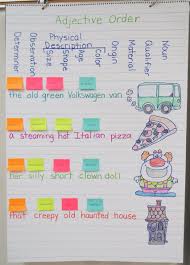 Adjective Order
Physical
Description
Determiner
Observation
Size
Shape
Age
Color
Origin
Material
Qualifier
Noun
the old green Volkswagen van
a steaming hot Italian pizza
her silly short clown doll
that creepy old haunted house